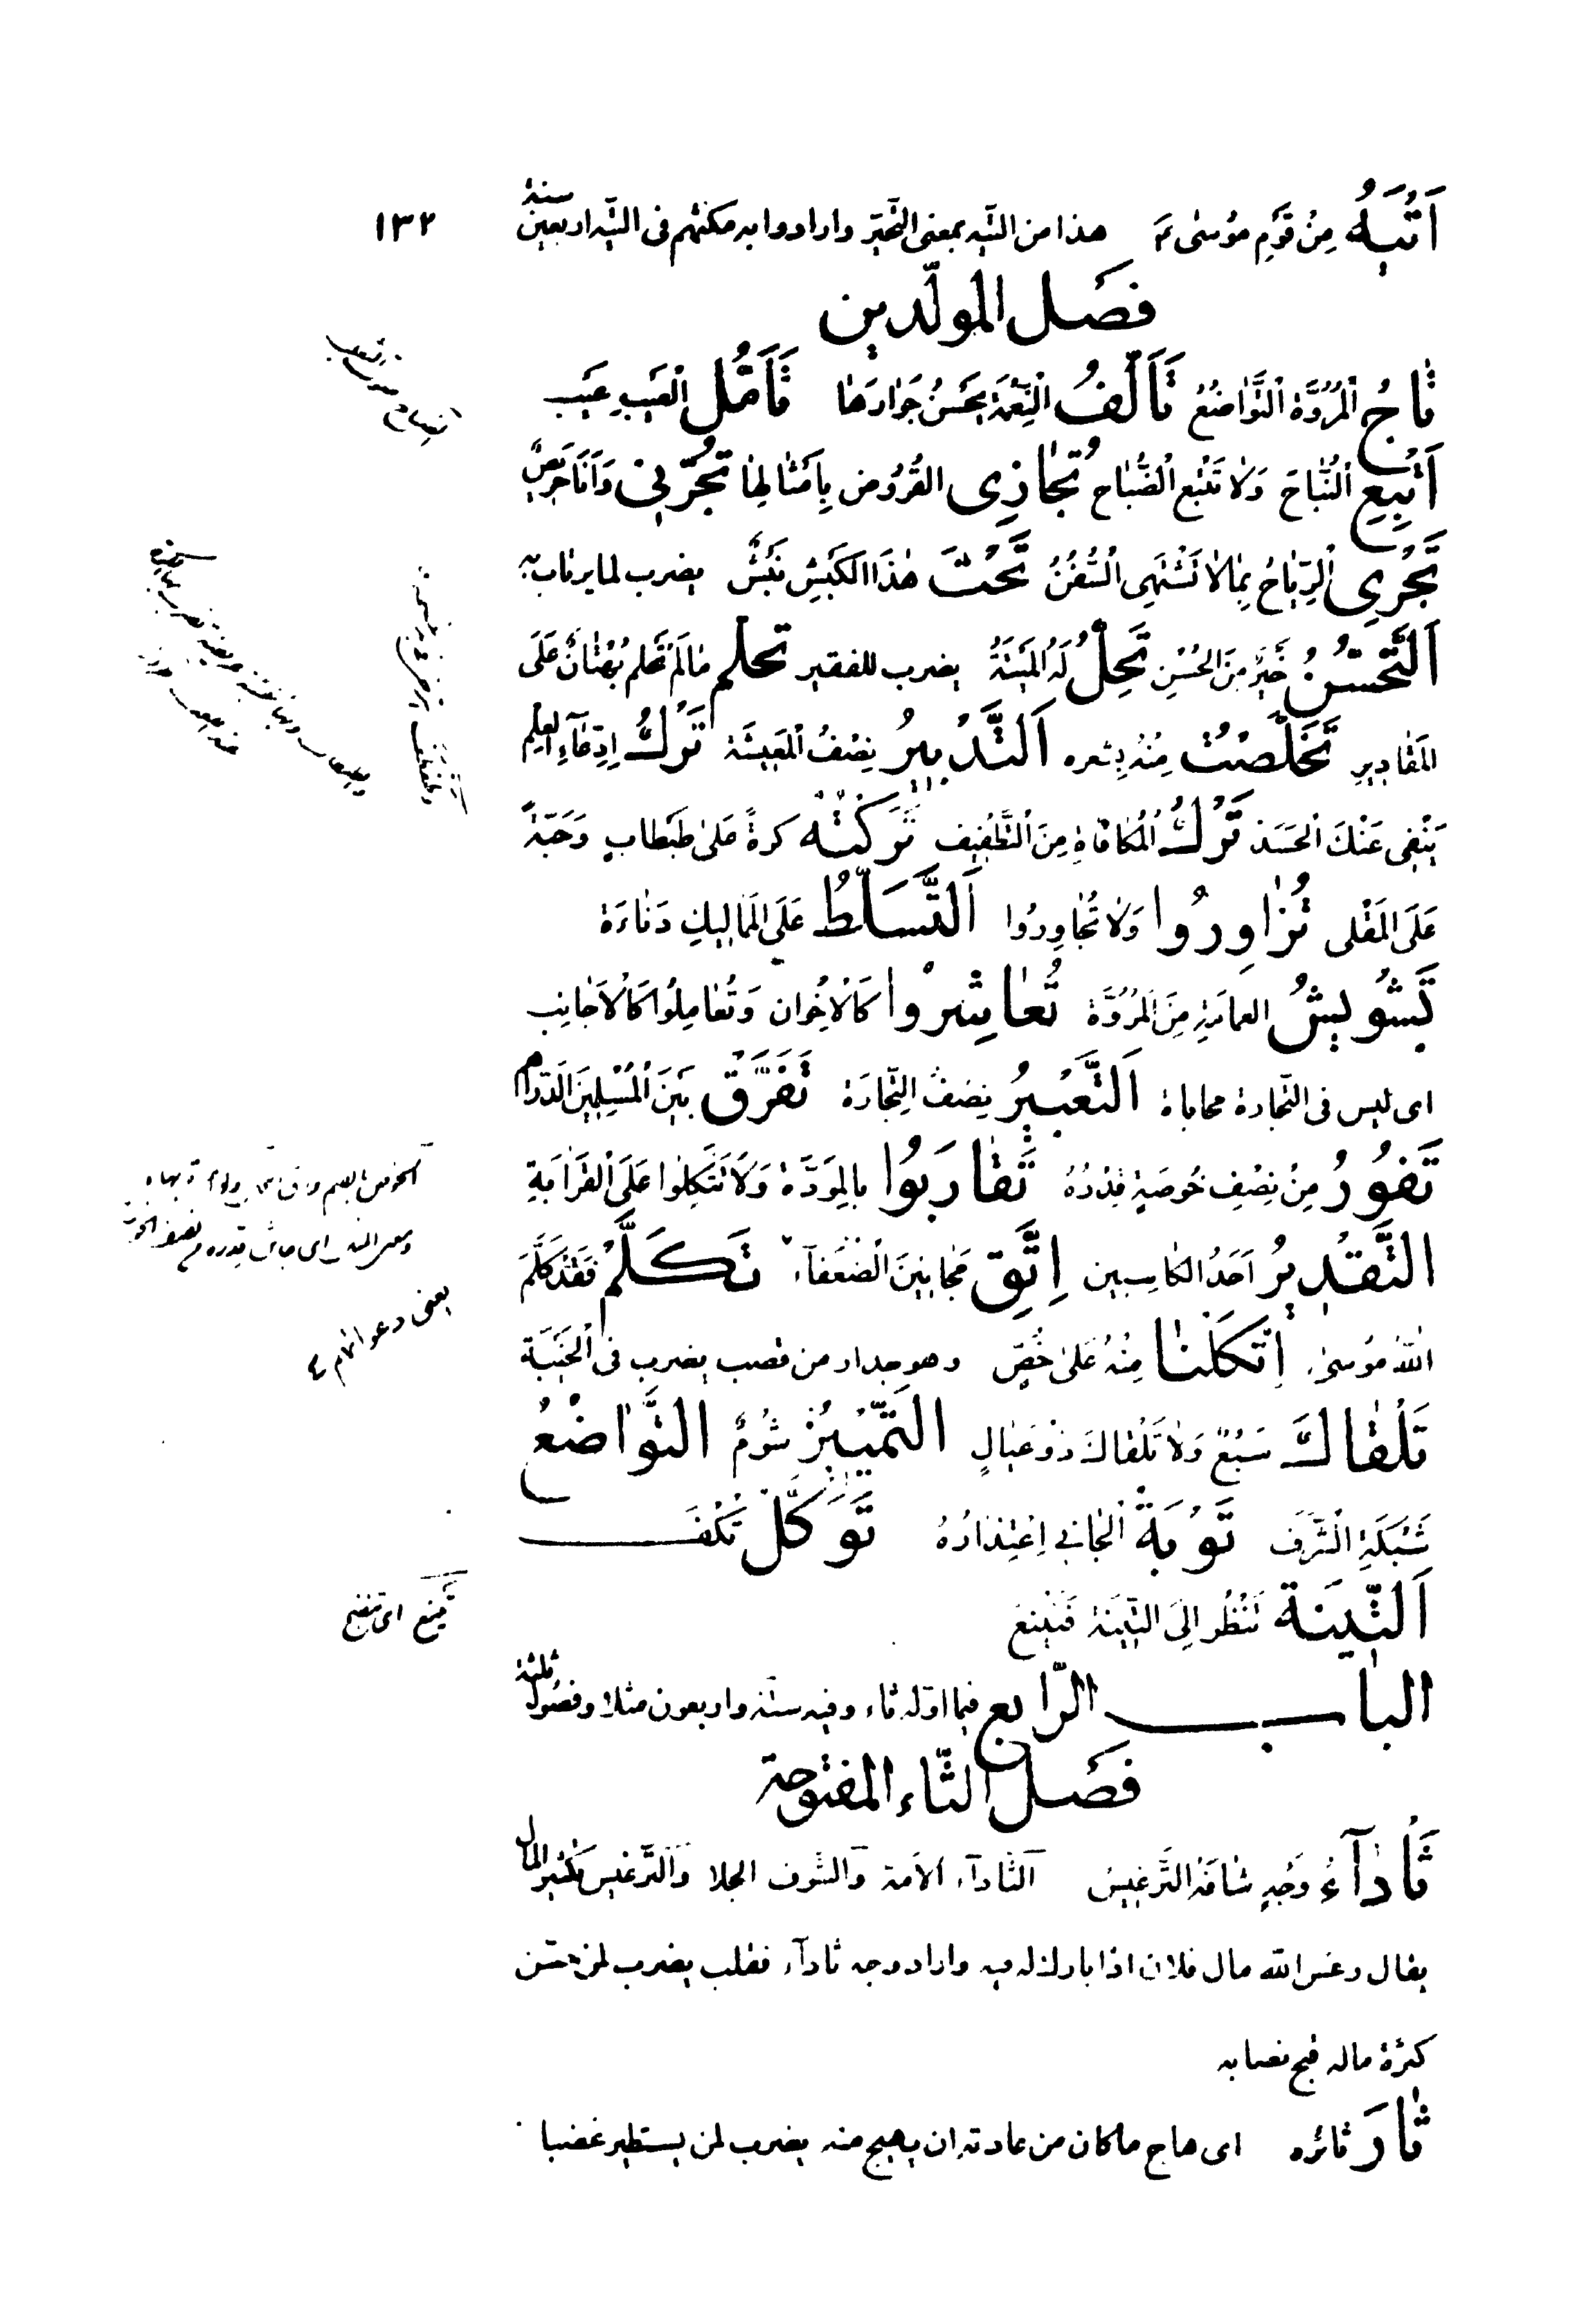 ١٣٢
اَتْيَهُ مِنْ قَوْمِ مُوسٰى هذا من التيه بمعنى التحيّر وارادوا به مكثهم فى التيه اربعين سنة
فصل المولّدين
تٰاجُ الْمُرُوَّةِ التَّوٰاضُعُ تَأَلَّفُ النِّعْمَةَ بِحُسْنِ جَوٰارِهٰا تَأَمُّل الْعَيْبِ عَيْب
اَتْبِعِ النُّبٰاحَ وَلٰا تَتْبَعِ الضُّبٰاح تُجٰازِى القُرُوض بِاَمْثٰالِهٰا تَجُرُّنِى وَاَنَا حَرِيصٌ
تَجْرِى الرِّيٰاحُ بِمٰا لٰا تَشْتَهِى السُّفُنُ تَحْتَ هٰذَا الكَبْشِ نَبْشٌ يضرب لما يرتاب به
اَلتَّحَسُّنُ خَيْرٌ مِنَ الْحُسْنِ تَحِلُّ لَهُ الْمَيْتَةُ يضرب للفقير تحلم مٰا لَمْ تَحْلُم بُهْتٰانٌ عَلَى
المَقٰادِيرِ تَخَلَّصْتُ مِنْهُ بِشعره اَلتَّدْبِيرُ نِصْفُ الْمَعِيشَة تَرْكُ اِدِّعٰآءِ العِلْمِ
يَنْفِى عَنْكَ الْحَسَد تَرْكُ الْمُكٰافَاةِ مِنَ التَّطْفِيف تَرَكْتُه كرةً عَلىٰ طَبْطابٍ وَحَبّةً
عَلَى الْمَقْلى تَزٰاوَرُوا وَلٰا تَجٰاوَرُوا اَلتَّسَلُّطُ عَلَى المَمٰالِيكِ دَنٰاءَة
تَشْوِيشُ العمامَةِ مِنَ الْمُرُوَّة تَعٰاشَرُوا كَالْاِخْوان وَتَعٰامَلُوا كَالْاَجٰانِب
اى ليس فى التجارة محاباة اَلتَّعْبِيرُ نِصْفُ التِّجٰارَة تَفَرَّقْ بَيْنَ الْمُسْلِمِينَ الدّرٰاهم
تَفُورُ مِنْ نِصْفِ خُوصَةٍ قِدْرُهُ تَقٰارَبُوا بالمَوَدَّة وَلَا تَتَّكِلُوا عَلَى الْقَرٰابَةِ
التَّقْدِيرُ اَحَدُ الكاسِبين اِتَّقِ مَجٰانِينَ الضُّعَفآء تَكَلَّمْ فَقَدْ كَلَّمَ
اللهُ مُوسىٰ اِتَّكَلْنٰا مِنْهُ عَلىٰ خُصٍّ وهو جدار من قصب يضرب فى الْخَيْبَة
تَلْقٰاكَ سَبُعٌ وَلٰا تَلْقاكَ ذُو عَيٰالٍ التَّمْيِيزُ شُومٌ التَّوٰاضُعُ
شَبَكَةُ الشَّرَف تَوْبَةُ الْجٰانِي اِعْتِذٰارُهُ تَوَكَّلْ تُكْفَ
اَلتّينَة تَنْظُر اِلَى التّينَة فَتَينَعُ
تَينَع اى تنضج
الباب الرّابع فيما اوّله ثاء وفيه ستّة واربعون مثلا وفصُول ثلثة
فصل الثّاء المفتوحة
ثَأْدٰآءُ وَجْهٍ شٰافَهُ التَّرْغِيسُ الثأدآء الامة والشوف الجلا والترغيس تكثير المال
يقال رغس الله مال فلان اذا بارك له فيه واراد وجه ثأدآء فقلب يضرب لمن حسّن
كثرة ماله قبح نصابه
ثٰارَ ثائره اى هاج ما كان من عادته ان يهيج منه يضرب لمن يستطير غضبا